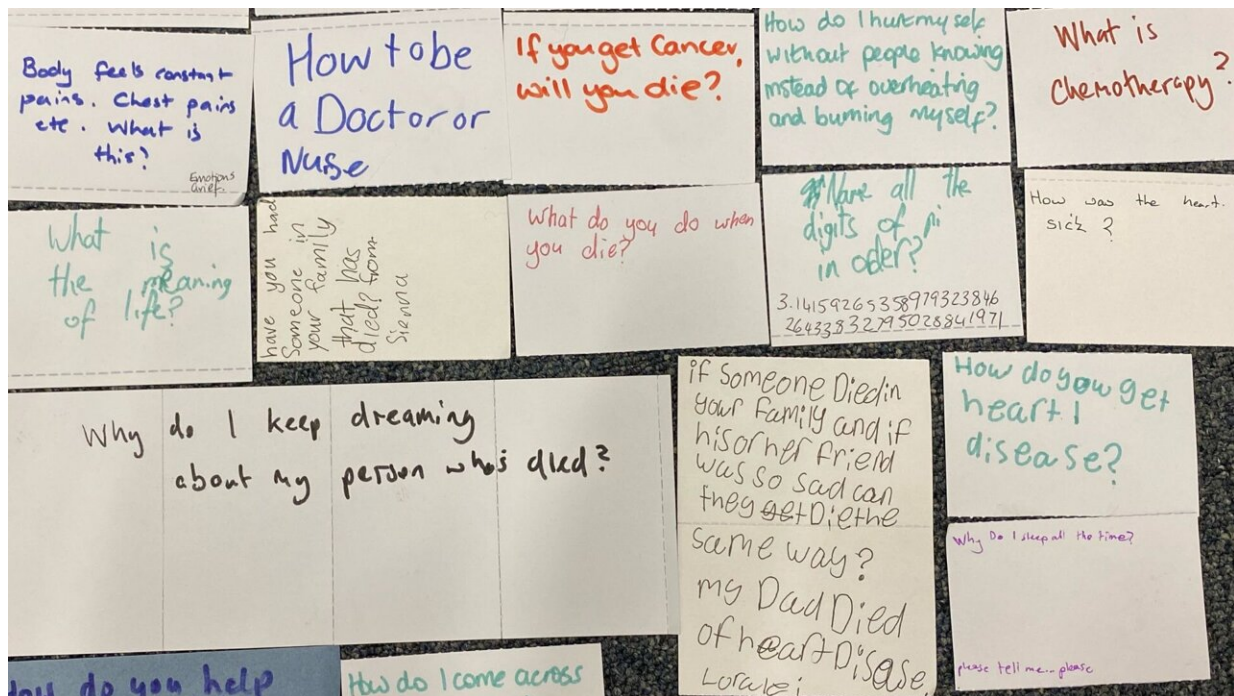 Body feels constant
pains. Chest pains
etc. What is
this?
Emotions
Grief.
How to be
a Doctor or
Nurse
If you get Cancer,
will you die?
How do I hurt my self
without people knowing
instead of overheating
and burning myself?
What is
chemotherapy?
What is
the meaning
of life?
have you had
Someone in
your family
that has
died? from
Sienna
What do you do when
you die?
Name all the
digits of pi
in oder?
3.14159265358979323846
2643383279502884 1971
How was the heart.
sick ?
Why do I keep dreaming
about my person who's died?
if Someone Died in
your family and if
his or her friend
was so sad can
they get Die the
same way?
my Dad Died
of heart Disease.
Loralei
How do you get
heart
disease?
Why Do I sleep all the time?
please tell me... please
How do you help
How do I come across